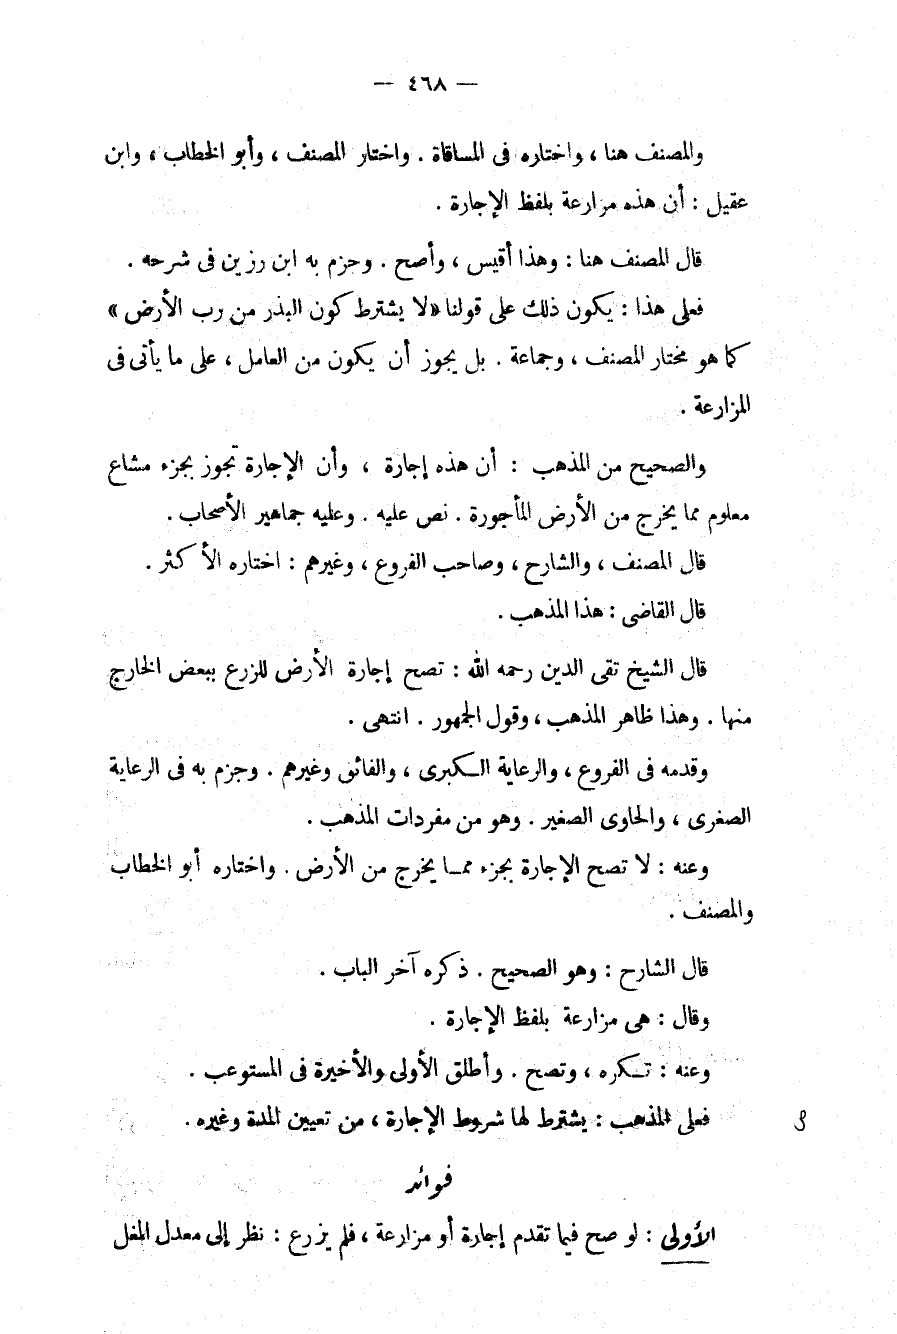 — ٤٦٨ —
والمصنف هنا ، واختاره فى المساقاة . واختار المصنف ، وأبو الخطاب ، وابن
عقيل : أن هذه مزارعة بلفظ الإجارة .
قال المصنف هنا : وهذا أقيس ، وأصح . وحزم به ابن رزين فى شرحه .
فعلى هذا : يكون ذلك على قولنا «لا يشترط كون البذر من رب الأرض»
كما هو مختار المصنف ، وجماعة . بل يجوز أن يكون من العامل ، على ما يأتى فى
المزارعة .
والصحيح من المذهب : أن هذه إجارة ، وأن الإجارة تجوز بجزء مشاع
معلوم مما يخرج من الأرض المأجورة . نص عليه . وعليه جماهير الأصحاب .
قال المصنف ، والشارح ، وصاحب الفروع ، وغيرهم : اختاره الأكثر .
قال القاضى : هذا المذهب .
قال الشيخ تقى الدين رحمه الله : تصح إجارة الأرض للزرع ببعض الخارج
منها . وهذا ظاهر المذهب ، وقول الجمهور . انتهى .
وقدمه فى الفروع ، والرعاية الكبرى ، والفائق وغيرهم . وجزم به فى الرعاية
الصغرى ، والحاوى الصغير . وهو من مفردات المذهب .
وعنه : لا تصح الإجارة بجزء مما يخرج من الأرض . واختاره أبو الخطاب
والمصنف .
قال الشارح : وهو الصحيح . ذكره آخر الباب .
وقال : هى مزارعة بلفظ الإجارة .
وعنه : تكره ، وتصح . وأطلق الأولى والأخيرة فى المستوعب .
فعلى المذهب : يشترط لها شروط الإجارة ، من تعيين المدة وغيره .
فوائد
الأولى : لو صح فيما تقدم إجارة أو مزارعة ، فلم يزرع : نظر إلى معدل المغل